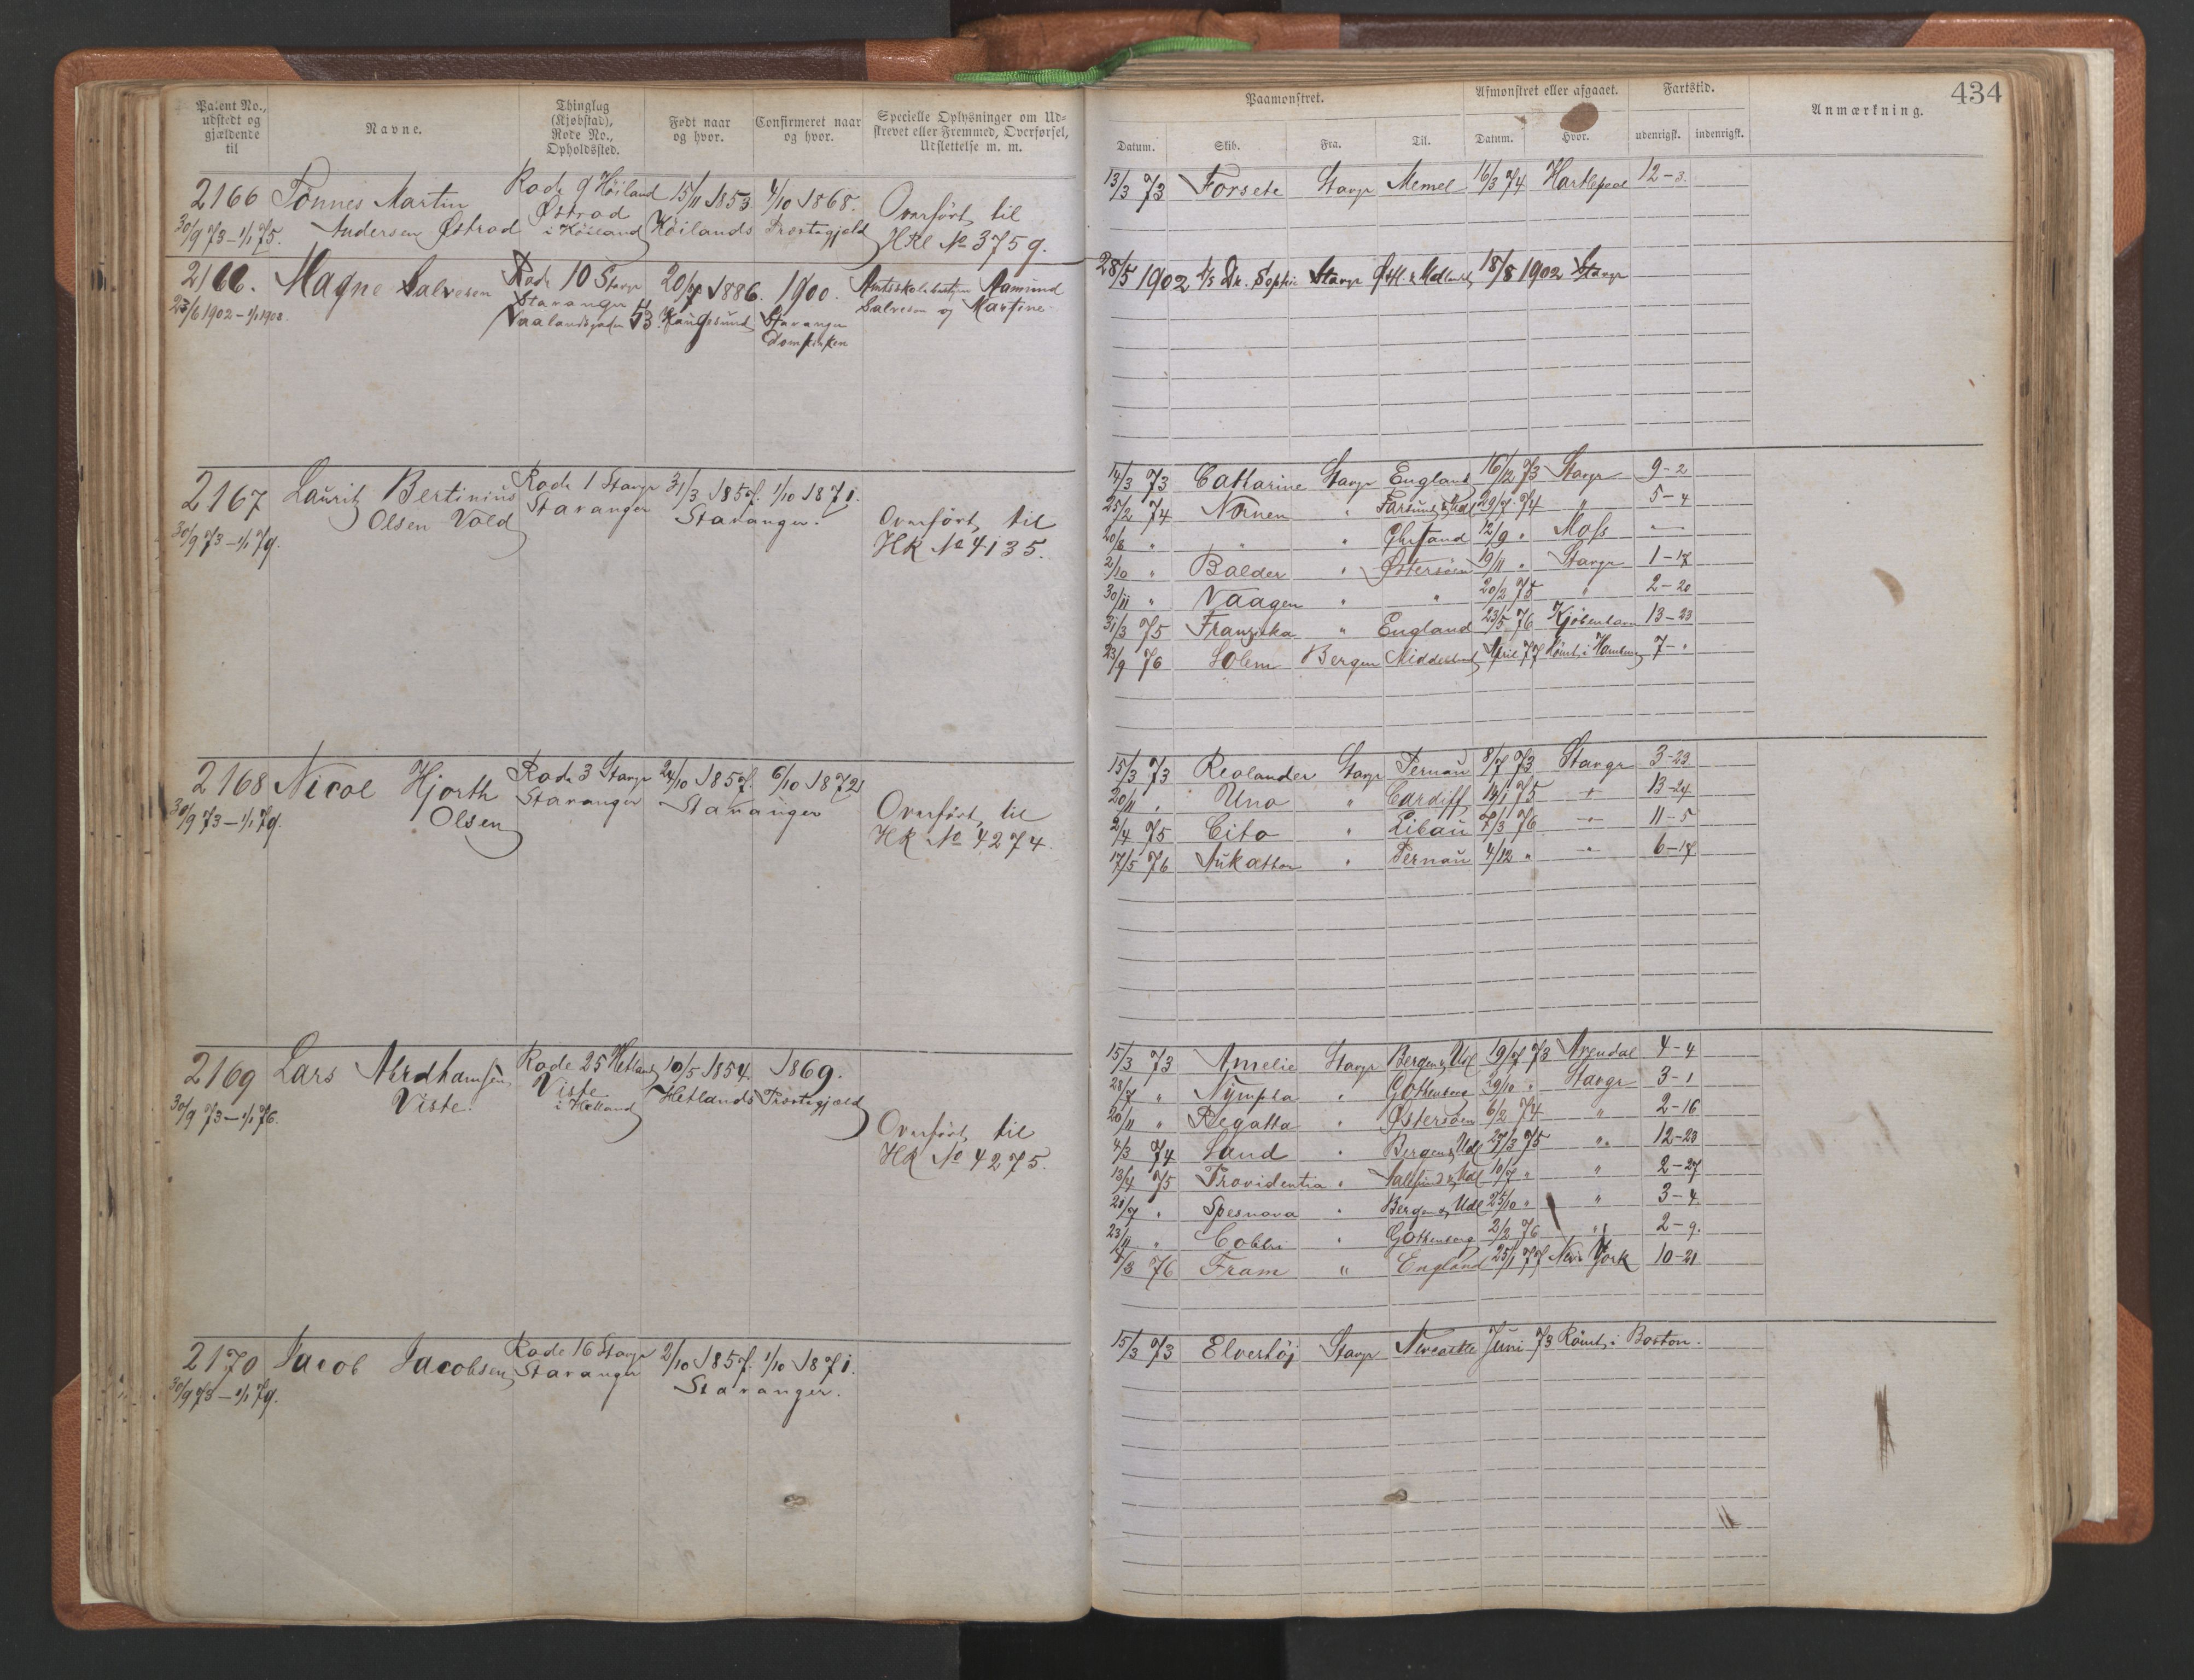 434
Patent No., udstedt og gjældende til
Navne.
Thinglag (Kjøbstad), Rode No., Opholdssted.
Født naar og hvor.
Confirmeret naar og hvor.
Specielle Oplysninger om Udskrevet eller Fremmed, Overførsel, Udslettelse m. m.
Paamønstret.
Afmønstret eller afgaaet.
Fartstid.
Anmærkning.
Datum. Skib. Fra. Til. Datum. Hvor. udenrigsk. indenrigsk.
2166 Tønnes Martin Rode 9 Höiland 15/11 1853 4/10 1868.
Østrad Overført til
30/9 73 – 1/1 75. Andersen Østrad i Höiland Höilands Præstegjeld HRl No 3759.
13/3 73 Forsete Stavgr Memel 16/3 74 Hartlepool 12-3
2166. Magne Salvesen Rode 10 Stavgr 20/7 1886. 1900. Amtsskolebestyrer Aamund
23/6 1902 – 1/1 1908. Stavanger Salvesen og Martine
Vaalandsgaden 53. Haugesund Stavanger
Domkirken
28/5 1902 Dr. Sophie Stavgr 18/8 1902 Stavgr
2167 Laurits Bertinius Rode 1 Stavgr 31/3 1857. 1/10 1871.
Olsen Vold Stavanger Stavanger. Overført til
30/9 73 – 1/1 79. HR No 4135.
14/3 73 Catharine Stavgr England 16/12 73 Stavgr 9-2
25/2 74 Nornen " Farsund & Udl 29/7 74 " 5-4
20/8 " " " 12/9 " Moss "
2/10 " Balder " Østersöen 19/11 " Stavgr 1-17
30/11 " Vaagen " " 20/2 75 " 2-20
31/3 75 Franziska " England 23/5 76 Kjøbenhavn 13-23
23/9 76 Solem Bergen Middelhavet April 77 Römt i Hamburg 7-"
2168 Nicol Hjorth Rode 3 Stavgr 24/10 1857. 6/10 1872
Olsen Stavanger Stavanger Overført til
30/9 73 – 1/1 79. HR No 4274.
15/3 73 Reolander Stavgr Pernau 8/7 73 Stavgr 3-23
20/11 " Uno " Cardiff 14/1 75 " 13-24
2/4 75 Cito " Libau 7/3 76 " 11-5
17/5 76 " Pernau 4/12 " " 6-17
2169 Lars Rode 25 Hetland 10/5 1854. 1869.
Viste. Viste i Hetland Hetlands Præstegjeld
30/9 73 – 1/1 76. Overført til
HR No 4275.
15/3 73 Amelie Stavgr Bergen & Udl 19/7 73 Arendal 4-4
28/7 " Nympha " Gothenborg 29/10 " Stavgr 3-1
20/11 " Regatta " Østersöen 6/2 74 " 2-16
4/3 74 Sand " Bergen & Udl 27/3 75 " 12-23
13/4 75 Providentia " & Udl 10/7 " " 2-27
21/7 " Spesnova " Bergen & Udl 25/10 " " 3-4
23/11 " Colibri " Gothenborg 2/2 76 " 2-9.
4/3 76 Fram " England 25/1 77 New York 10-21
2170 Jacob Jacobsen Rode 16 Stavgr 2/10 1857. 1/10 1871.
30/9 73 – 1/1 79. Stavanger Stavanger.
15/3 73 Elverhöj Stavgr Newcastle Juni 73 Römt i Boston.